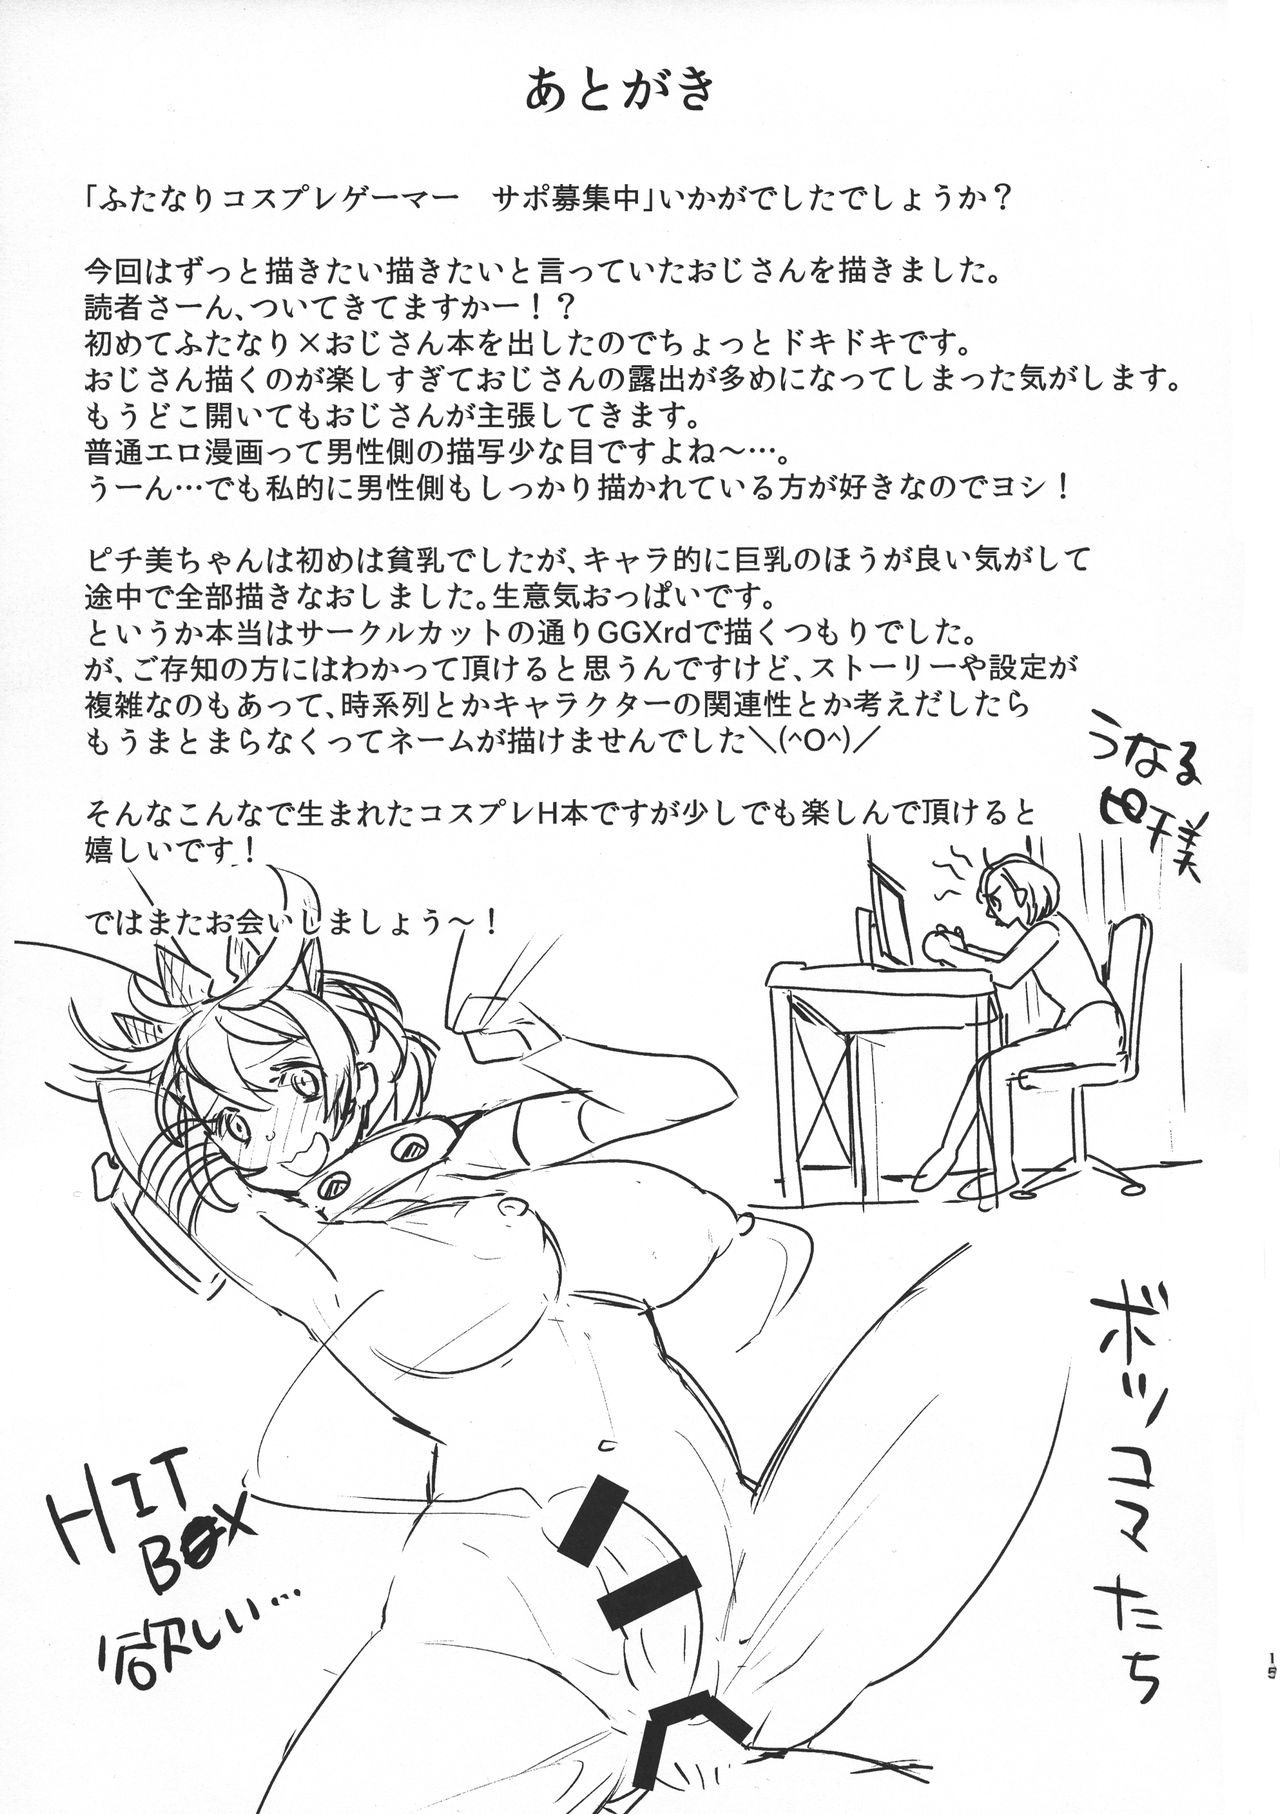 あとがき
「ふたなりコスプレゲーマー　サポ募集中」いかがでしたでしょうか？
今回はずっと描きたい描きたいと言っていたおじさんを描きました。
読者さーん、ついてきてますかー！？
初めてふたなり×おじさん本を出したのでちょっとドキドキです。
おじさん描くのが楽しすぎておじさんの露出が多めになってしまった気がします。
もうどこ開いてもおじさんが主張してきます。
普通エロ漫画って男性側の描写少な目ですよね～…。
うーん…でも私的に男性側もしっかり描かれている方が好きなのでヨシ！
ピチ美ちゃんは初めは貧乳でしたが、キャラ的に巨乳のほうが良い気がして
途中で全部描きなおしました。生意気おっぱいです。
というか本当はサークルカットの通りGGXrdで描くつもりでした。
が、ご存知の方にはわかって頂けると思うんですけど、ストーリーや設定が
複雑なのもあって、時系列とかキャラクターの関連性とか考えだしたら
もうまとまらなくってネームが描けませんでした＼(^O^)／
そんなこんなで生まれたコスプレH本ですが少しでも楽しんで頂けると
嬉しいです！
ではまたお会いしましょう～！
うなる
ピチ美
ボツコマたち
HIT
BOX
欲しい…
15